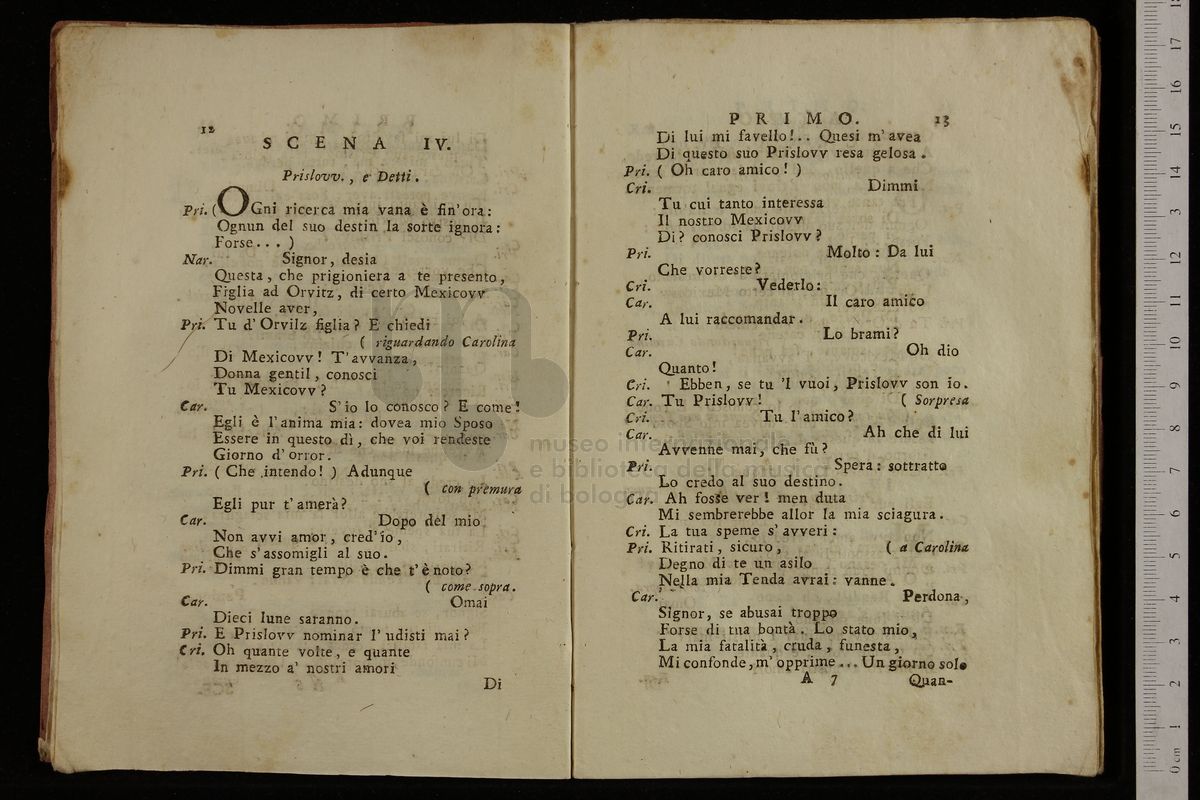 12
SCENA IV.
Prislovv., e Detti.
Pri. ( OGni ricerca mia vana è fin' ora:
Ognun del suo destin la sorte ignora:
Forse... )
Nar. Signor, desia
Questa, che prigioniera a te presento,
Figlia ad Orvitz, di certo Mexicovv
Novelle aver,
Pri. Tu d' Orvilz figlia? E chiedi
( riguardando Carolina
Di Mexicovv! T' avvanza,
Donna gentil, conosci
Tu Mexicovv?
Car. S' io lo conosco? E come!
Egli è l' anima mia: dovea mio Sposo
Essere in questo dì, che voi rendeste
Giorno d' orror.
Pri. ( Che intendo! ) Adunque
( con premura
Egli pur t' amerà?
Car. Dopo del mio
Non avvi amor, cred' io,
Che s' assomigli al suo.
Pri. Dimmi gran tempo è che t' è noto?
( come sopra.
Car. Omai
Dieci lune saranno.
Pri. E Prislovv nominar l' udisti mai?
Cri. Oh quante volte, e quante
In mezzo a' nostri amori
Di
PRIMO. 13
Di lui mi favello!.. Quesi m' avea
Di questo suo Prislovv resa gelosa.
Pri. ( Oh caro amico! )
Cri. Dimmi
Tu cui tanto interessa
Il nostro Mexicovv
Di? conosci Prislovv?
Pri. Molto: Da lui
Che vorreste?
Cri. Vederlo:
Car. Il caro amico
A lui raccomandar.
Pri. Lo brami?
Car. Oh dio
Quanto!
Cri. Ebben, se tu 'l vuoi, Prislovv son io.
Car. Tu Prislovv! ( Sorpresa
Cri. Tu l' amico?
Car. Ah che di lui
Avvenne mai, che fù?
Pri. Spera: sottratto
Lo credo al suo destino.
Car. Ah fosse ver! men duta
Mi sembrerebbe allor la mia sciagura.
Cri. La tua speme s' avveri:
Pri. Ritirati, sicuro, ( a Carolina
Degno di te un asilo
Nella mia Tenda avrai: vanne.
Car. Perdona,
Signor, se abusai troppo
Forse di tua bontà. Lo stato mio,
La mia fatalità, cruda, funesta,
Mi confonde, m' opprime... Un giorno solo
A 7 Quan-
museo internazionale
e biblioteca della musica
di bologna